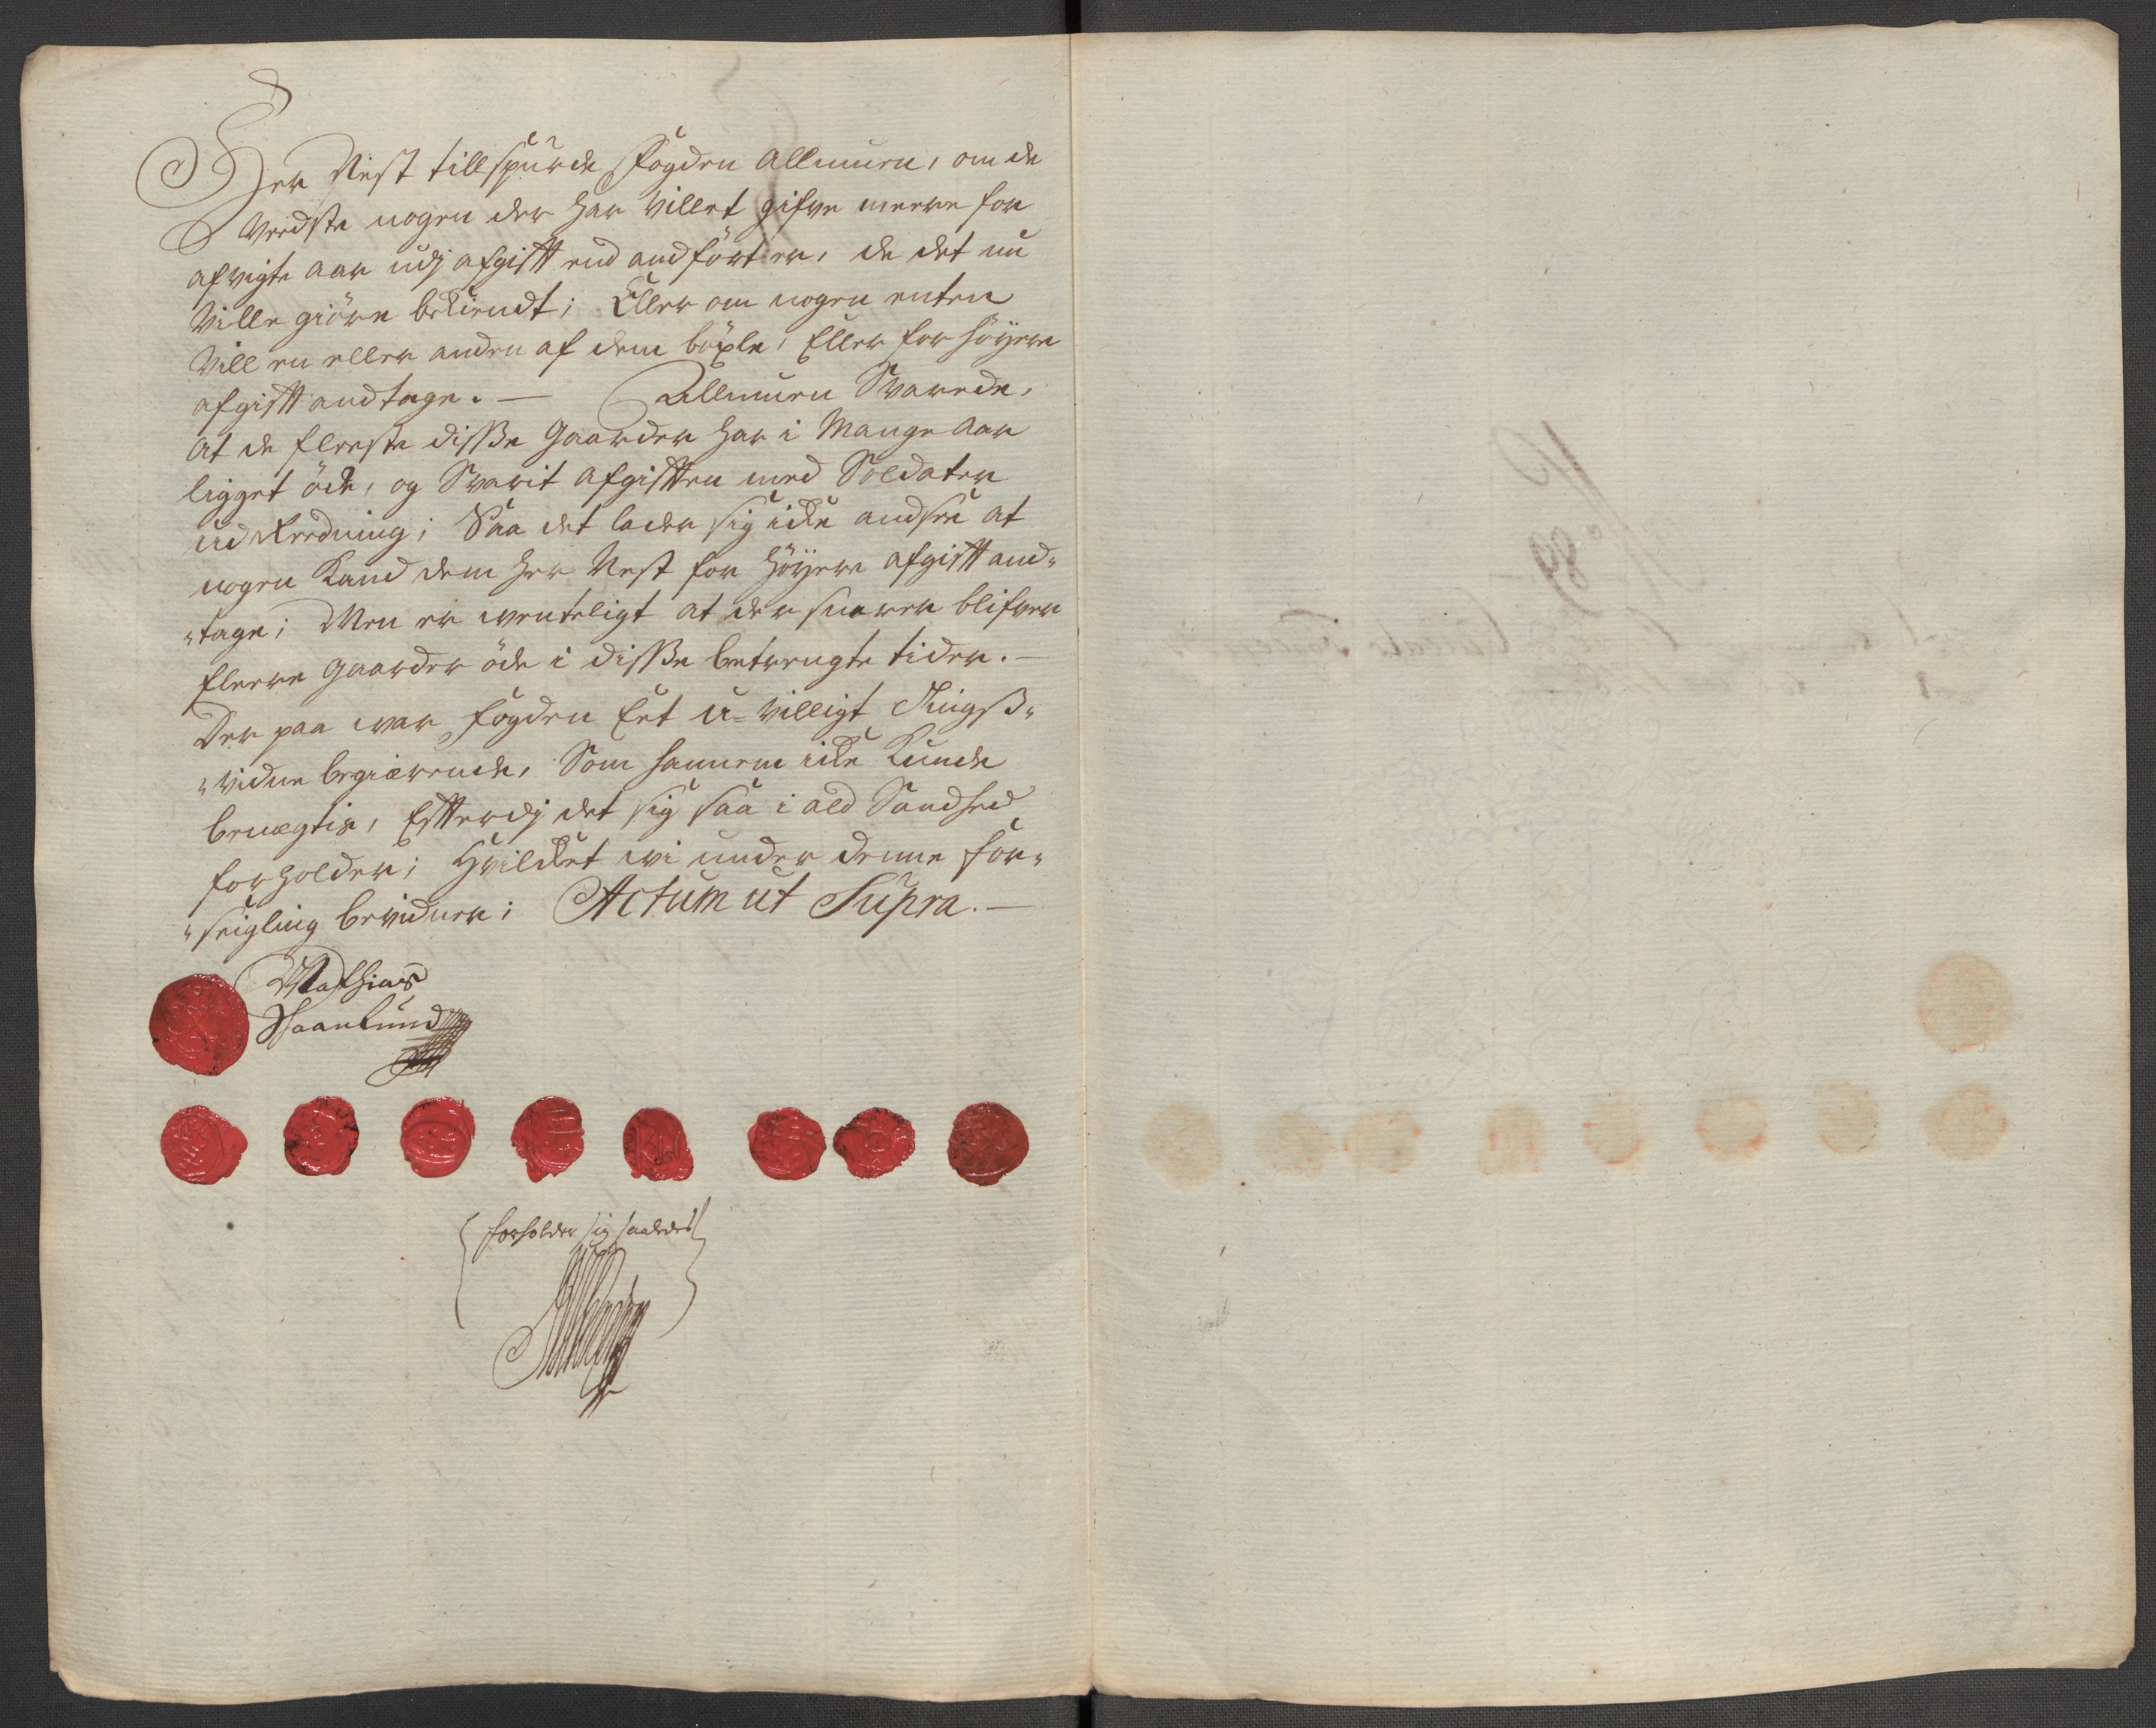 Her Nest tillspurde Fogden Allmuen, om de
Veedste nogen der har villet gifve meere for
afvigte aar udj afgifft end andført er, de det nu
Ville giöre bekiendt; Eller om nogen enten
Vill en eller anden af dem böxle, Eller for høyere
afgifft andtage. — Allmuen Svarede,
at de fleeste disse Gaarder har i Mange Aar
ligget öde, og Svarit afgifften med Soldater
ud Reedning; Saa det lader sig icke andsee at
nogen Kand dem her Nest for høyere afgifft and-
tage; Men er wenteligt at der snarer blifver
fleere gaarder öde i disse betrengte tider. —
Der paa war fogden Eet u-villigt Tingß-
vidne begiærende, Som hannem icke Kunde
benægtis, Effterdj det sig saa i ald Sandhed
forholder; Hvilcket wi under denne for-
seigling bevidner; Actum ut Supra. —
Mathias
Skaanlund
forholder sig saaledes
No 89